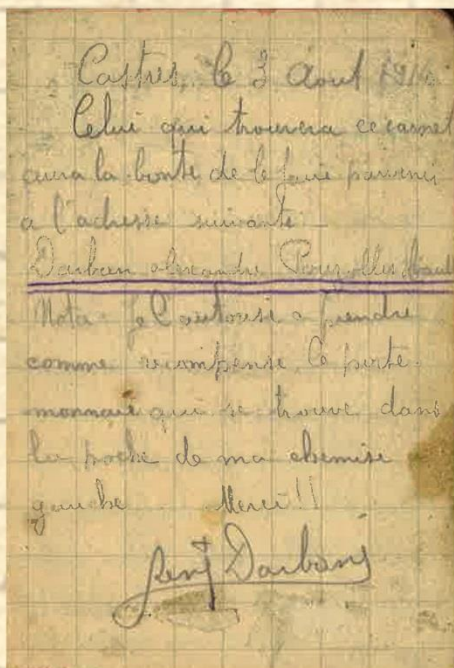 Castres, le 3 Aout 1914
Celui qui trouvera ce carnet
aura la bonte de le faire parvenir
a l'adresse suivante
Darban alexandre Pouzolles Hérault
Nota - Je l'autorise a prendre
comme recompense le porte-
monnaie qui se trouve dans
la poche de ma chemise a
gauche Merci!!
Darbans